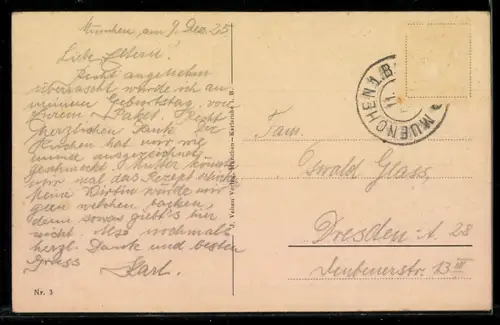 München, am 9. Dez. 25
Liebe Eltern!
Recht angenehm
überrascht wurde ich an
meinem Geburtstag von
Eurem Paket. Recht
herzlichen Dank. Der
Kuchen hat mir wie
immer ausgezeichnet
geschmeckt. Mutter könnte
mir mal das Rezept schicken
Meine Wirtin würde mir
gern welchen backen,
denn sowas giebt's hier
nicht. Also nochmals
herzl. Dank und besten
Gruss
Karl.
Nr. 3
München-Karlsruhe i. B.
MUENCHEN 1. B.
11.
Fam.
Oswald Glass,
Dresden-A. 28
13 III